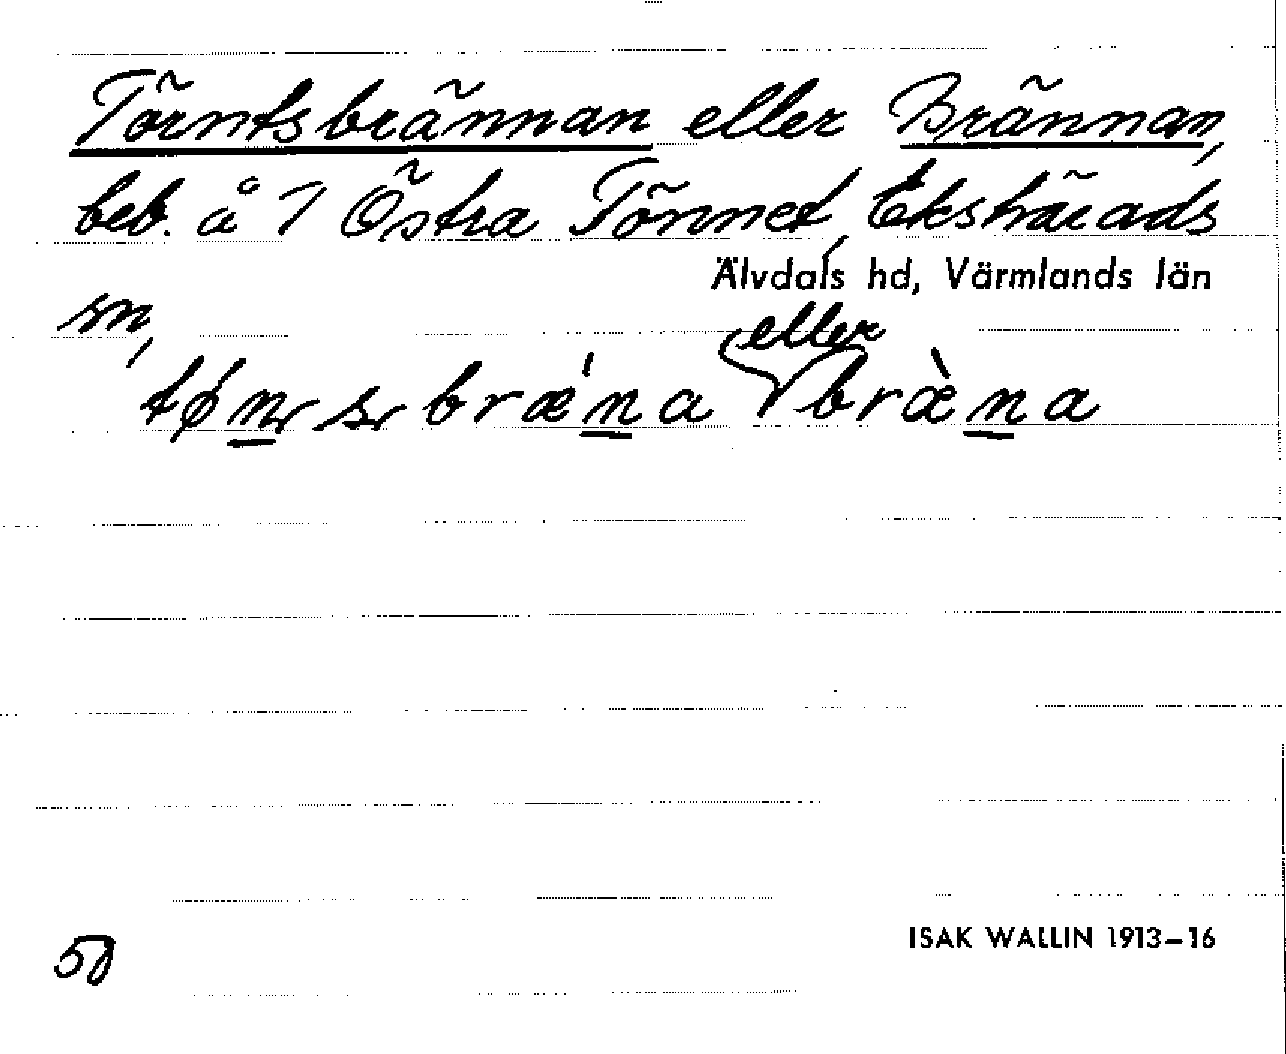 Törntsbrännan eller Brännan,
beb. å 7 Östra Tönnet, Ekshärads
Älvdals hd, Värmlands län
sn,
eller
tøn s bræ´na bræ`na
58
ISAK WALLIN 1913–16